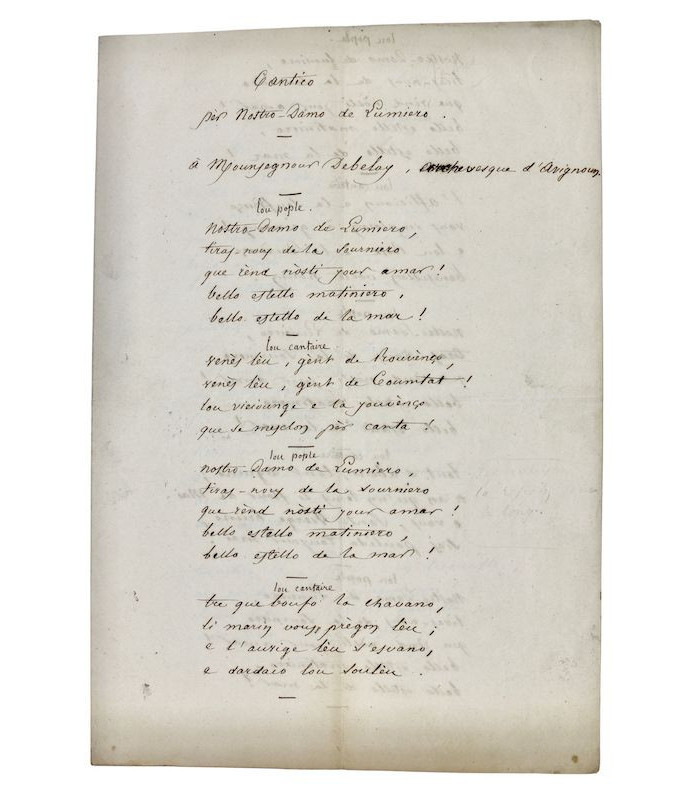 Cantico
pèr Nostro-Damo de Lumiero.
à Mounsegnour Debelay, archevesque d'Avignoun.
lou pople.
Nostro-Damo de Lumiero,
tiras-nous de la sourniero
que rènd nòsti jour amar!
bello estello matiniero,
bello estello de la mar!
lou cantaire.
venès lèu, gènt de Prouvènço,
venès lèu, gènt de Coumtat!
lou vieiounge e la jouvènço
que se mesclon pèr canta!
lou pople
Nostro-Damo de Lumiero,
tiras-nous de la sourniero
que rènd nòsti jour amar!
bello estello matiniero,
bello estello de la mar!
lou cantaire
tre que boufo la chavano,
li marin vous prègon lèu;
e l'aurige lèu s'esvano,
e dardaio lou soulèu.